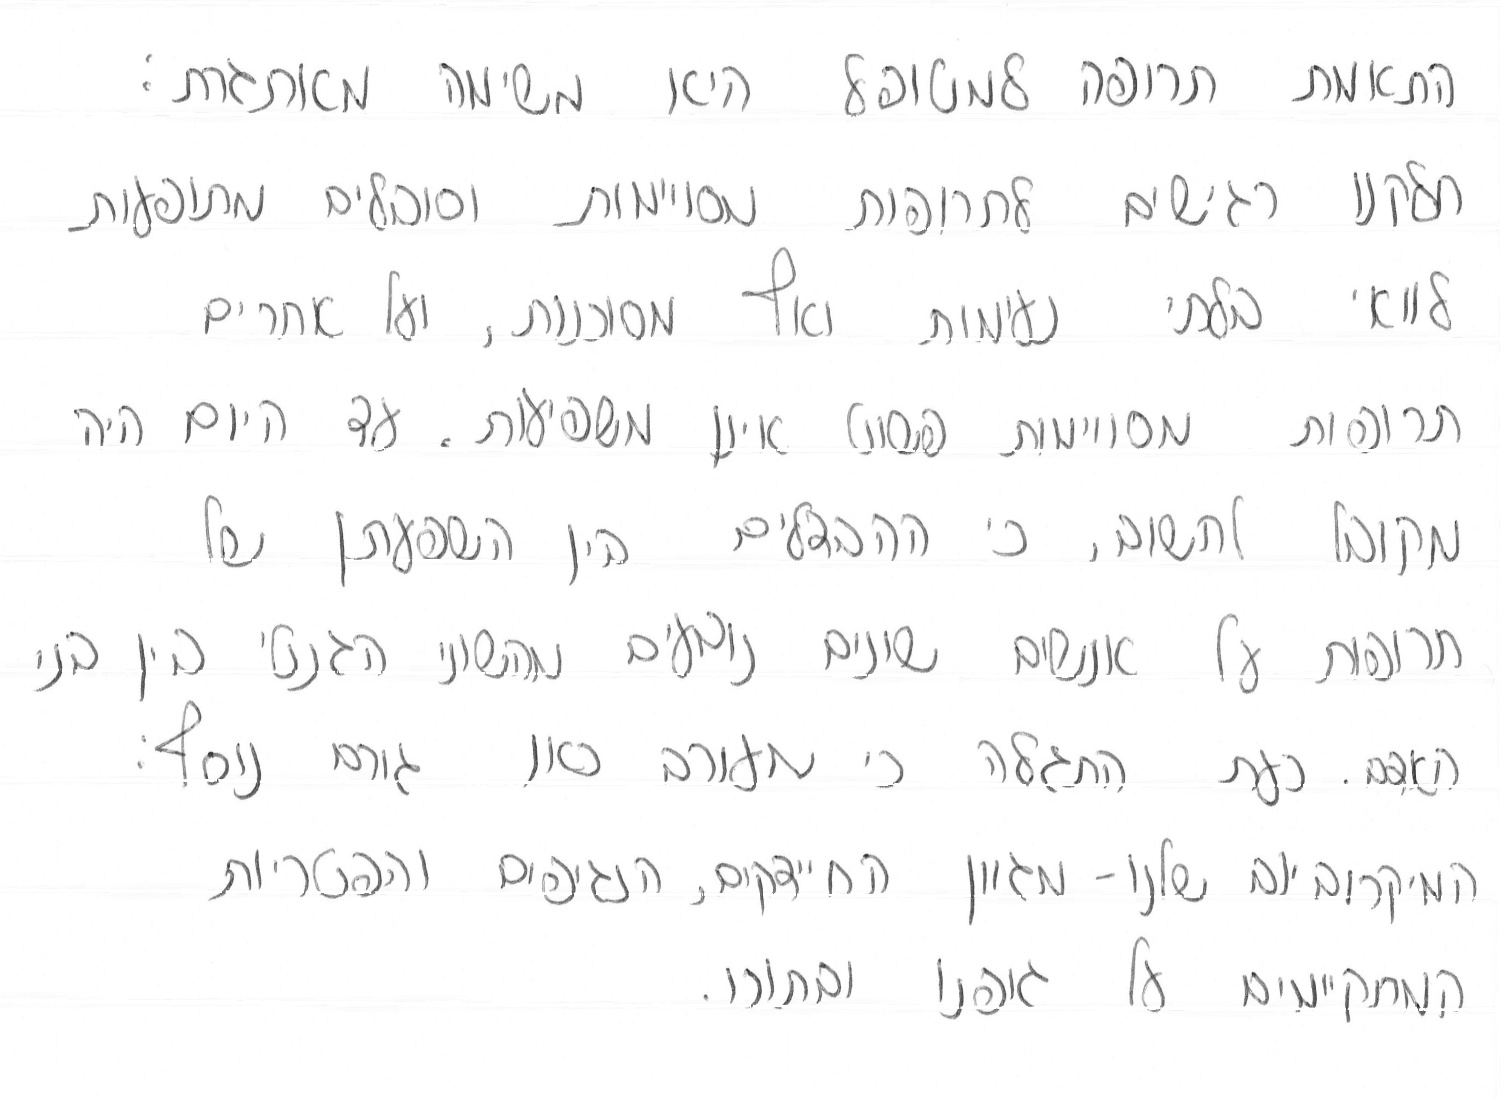 התאמת תרופה למטופל היא משימה מאתגרת:
חלקנו רגישים לתרופות מסויימות וסובלים מתופעות
לוואי בלתי נעימות ואף מסוכנות, ועל אחרים
תרופות מסויימות פשוט אינן משפיעות. עד היום היה
מקובל לחשוב, כי ההבדלים בין השפעתן של
תרופות על אנשים שונים נובעים מהשוני הגנטי בין בני
האדם. כעת התגלה כי מעורב כאן גורם נוסף:
המיקרוביום שלנו - מגוון החיידקים, הנגיפים והפטריות
המתקיימים על גופנו ובתוכו.